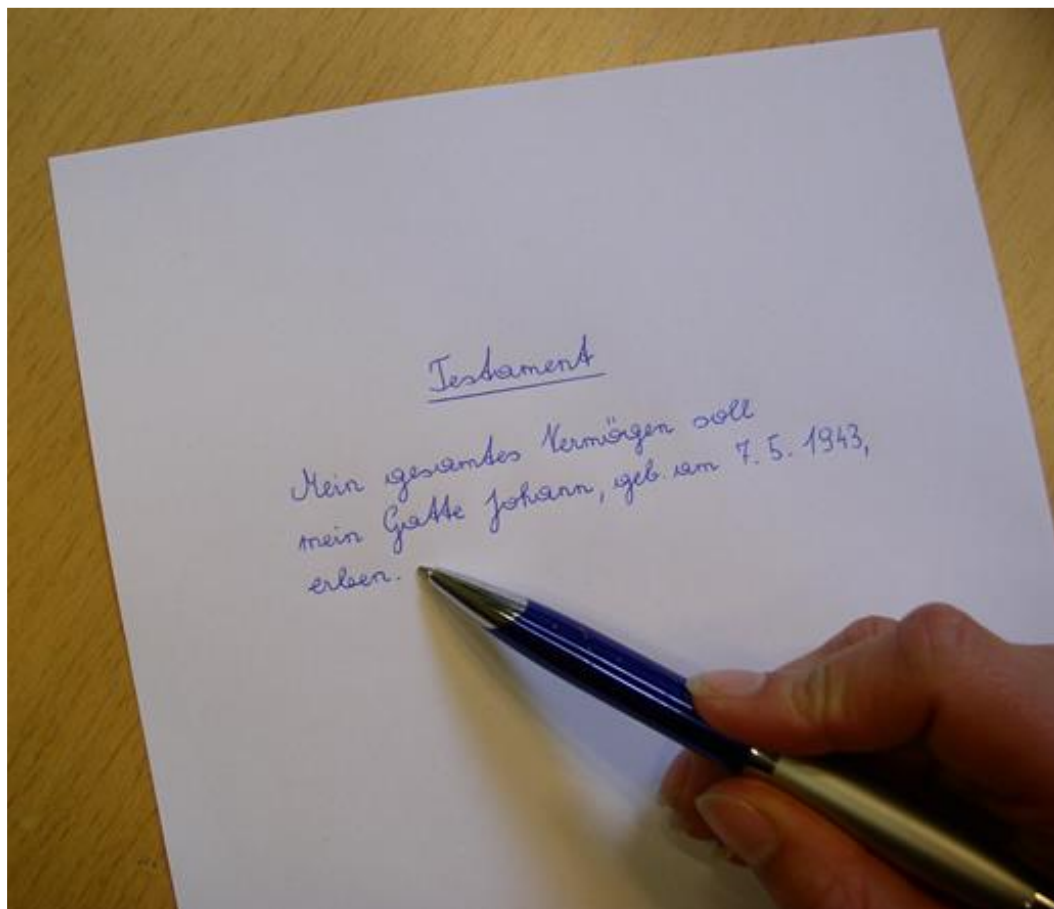 Testament
Mein gesamtes Vermögen soll
mein Gatte Johann, geb. am 7. 5. 1943,
erben.